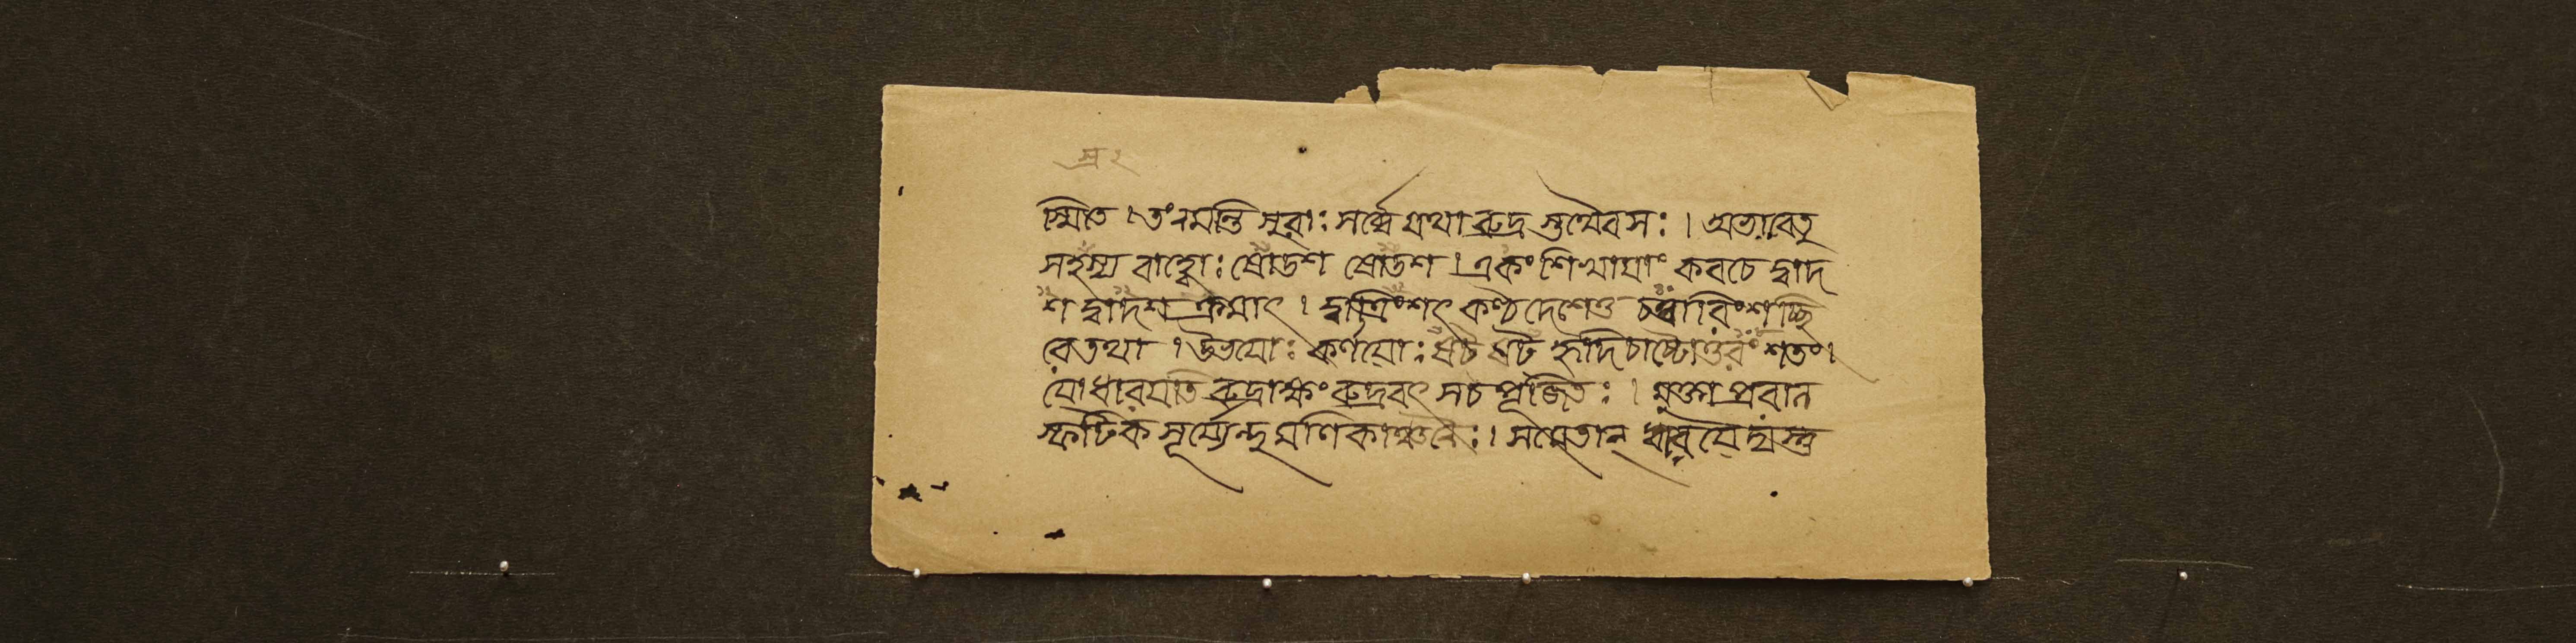 স্মিতে । তং নমন্তি সুরাঃ সর্ব্বে যথা রুদ্র স্তথৈবসঃ । অভাবেতু
সহস্রস্য বাহ্বোঃ ষোডশ ষোডশ । একং শিখায়াং কবচে দ্বাদ
শ দ্বাদশ ক্রমাৎ । দ্বাত্রিংশৎ কণ্ঠদেশেতু চত্বারিংশচ্ছি
রে তথা । উভয়োঃ কর্ণয়োঃ ষট ষট হৃদিচাষ্টোত্তরং শতং।
যো ধারয়তি রুদ্রাক্ষং রুদ্রবৎ সচ পূজিতঃ । মুক্তা প্রবাল
স্ফটিক সূর্য্যেন্দু মণি কাঞ্চনৈঃ । সমেতান্ ধারয়েদ্যস্তু